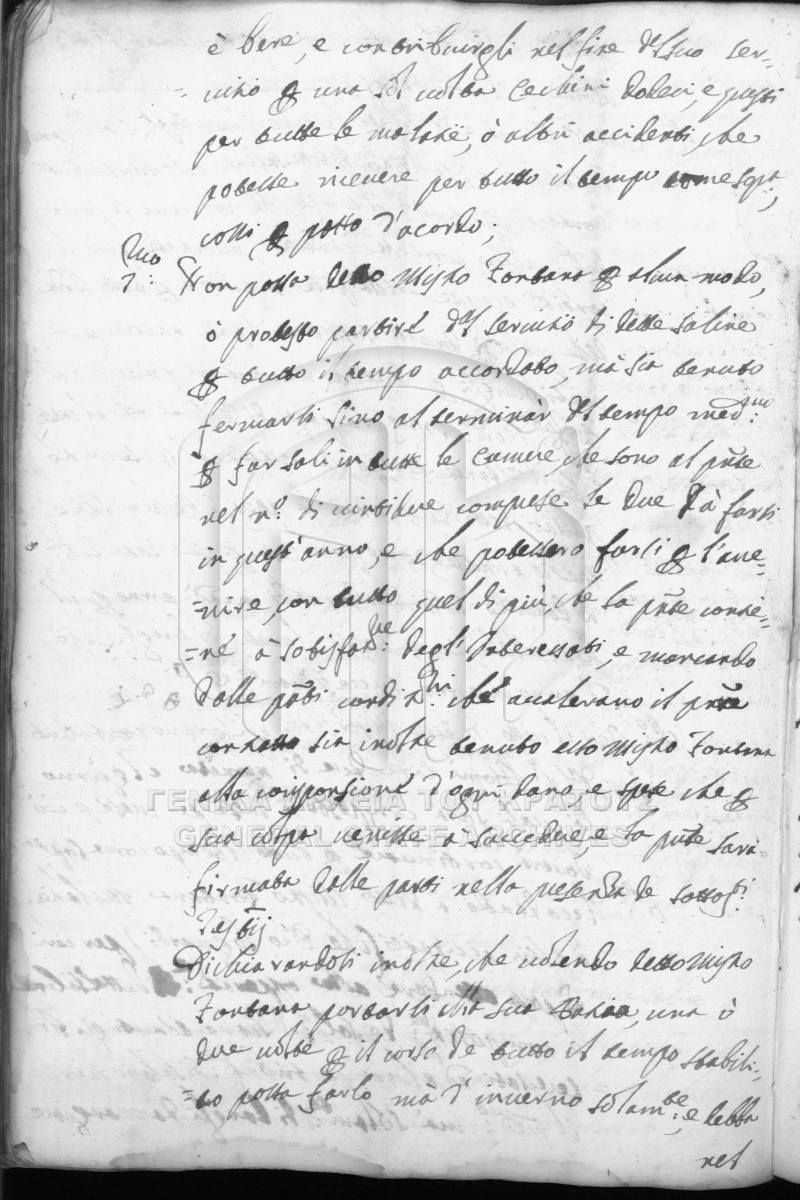 è bere, e contribuirgli nel fine del suo ser-
=uitio per una sol uolta Cechini dodeci, e questi
per tutte le malatie, ò altri accidenti, che
potesse riceuere per tutto il tempo come sopra,
così per patto d'acordo;
7: Non possa detto Mistro Fontana per alcun modo,
ò protesto partire del seruitio di dette saline
per tutto il tempo accordato, mà sia tenuto
fermarsi sino al terminàr del tempo med:mo
per far sali in tutte le Camere, che sono al pnte
nel n.o di uintidue comprese le due dà farsi
in quest'anno, e che potessero farsi per l'aue-
=nire, con tutto quel di più, che la pnte contie-
=ne à sotisfat:ne degl'Interessati, e mancando
dalle pnti condit:ni che aualerano il pnte
contratto sia inoltre tenuto esso Mistro Fontana
alla comporsione d'ogni dano, e spese che per
sua colpa uenisse à succedere, e la pnte sarà
firmata dalle parti nella presenza de sottos:ti
Testij
Dichiarandosi inoltre, che uolendo detto Mistro
Fontana portarsi alla sua Patria, una ò
due uolte per il corso de tutto il tempo stabili-
=to possa farlo mà d'inuerno solam:te, e debba
nel
ΓΕΝΙΚΑ ΑΡΧΕΙΑ ΤΟΥ ΚΡΑΤΟΥΣ
GENERAL STATE ARCHIVES